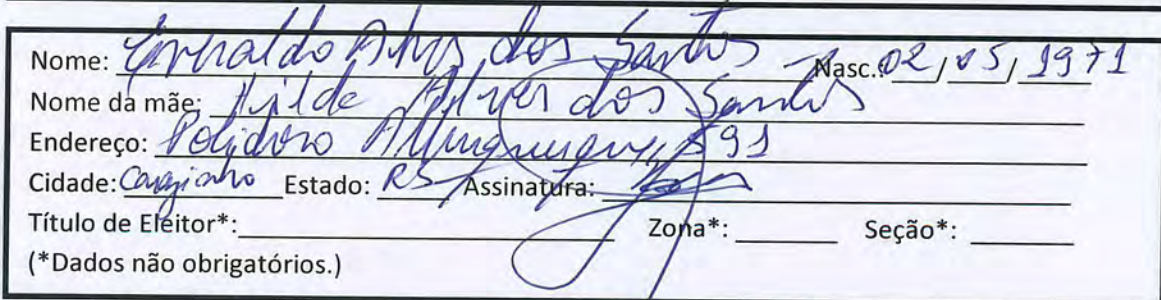 Nome: Alves dos Santos Nasc.: 02/05/1971
Nome da mãe: Nilda Alves dos Santos
Endereço: Polidoro Albuquerque, 591
Cidade: Estado: RS Assinatura:
Título de Eleitor*: Zona*: Seção*:
(*Dados não obrigatórios.)